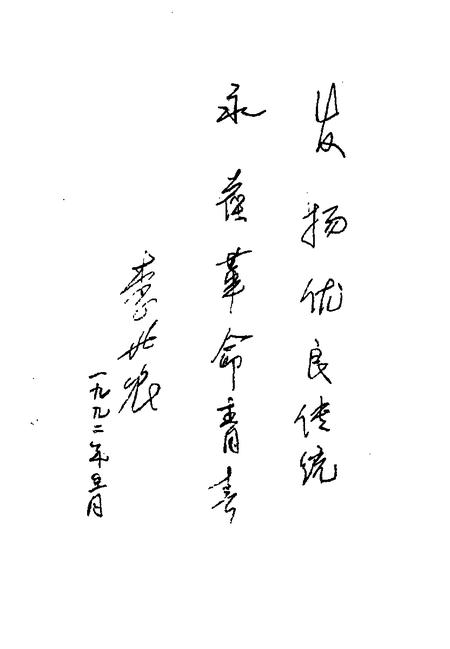 发扬优良传统
永葆革命青春
李世农
一九九二年五月